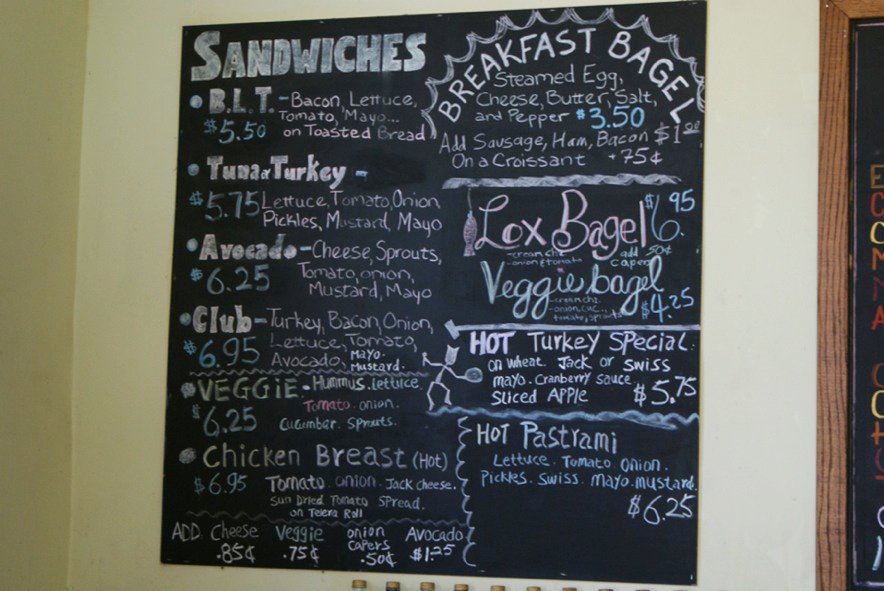 SANDWICHES
B.L.T. - Bacon, Lettuce,
Tomato, Mayo...
$5.50 on Toasted Bread
Tuna or Turkey -
$5.75 Lettuce, Tomato, Onion,
Pickles, Mustard, Mayo
Avocado - Cheese, Sprouts,
$6.25 Tomato, onion,
Mustard, Mayo
Club - Turkey, Bacon, Onion,
$6.95 Lettuce, Tomato,
Avocado, Mayo.
Mustard.
VEGGIE - Hummus. lettuce.
$6.25 Tomato. onion.
Cucumbar. Sprouts.
Chicken Breast (Hot)
$6.95 Tomato. onion. Jack cheese.
Sun Dried Tomato Spread.
on Telera Roll
ADD Cheese Veggie onion capers Avocado
.85¢ .75¢ .50¢ $1.25
BREAKFAST BAGEL
Steamed Egg,
Cheese, Butter, Salt,
and Pepper $3.50
Add Sausage, Ham, Bacon $1.00
On a Croissant +75¢
Lox Bagel $6.95
creamche
onion & tomato
add 50¢
capers
Veggie bagel
$4.25
creamche.
onion, cuc..
tomato, sprouts
HOT Turkey Special.
on wheat. Jack or Swiss
mayo. Cranberry sauce
Sliced Apple $5.75
HOT Pastrami
Lettuce. Tomato Onion.
Pickles. Swiss. mayo. mustard.
$6.25